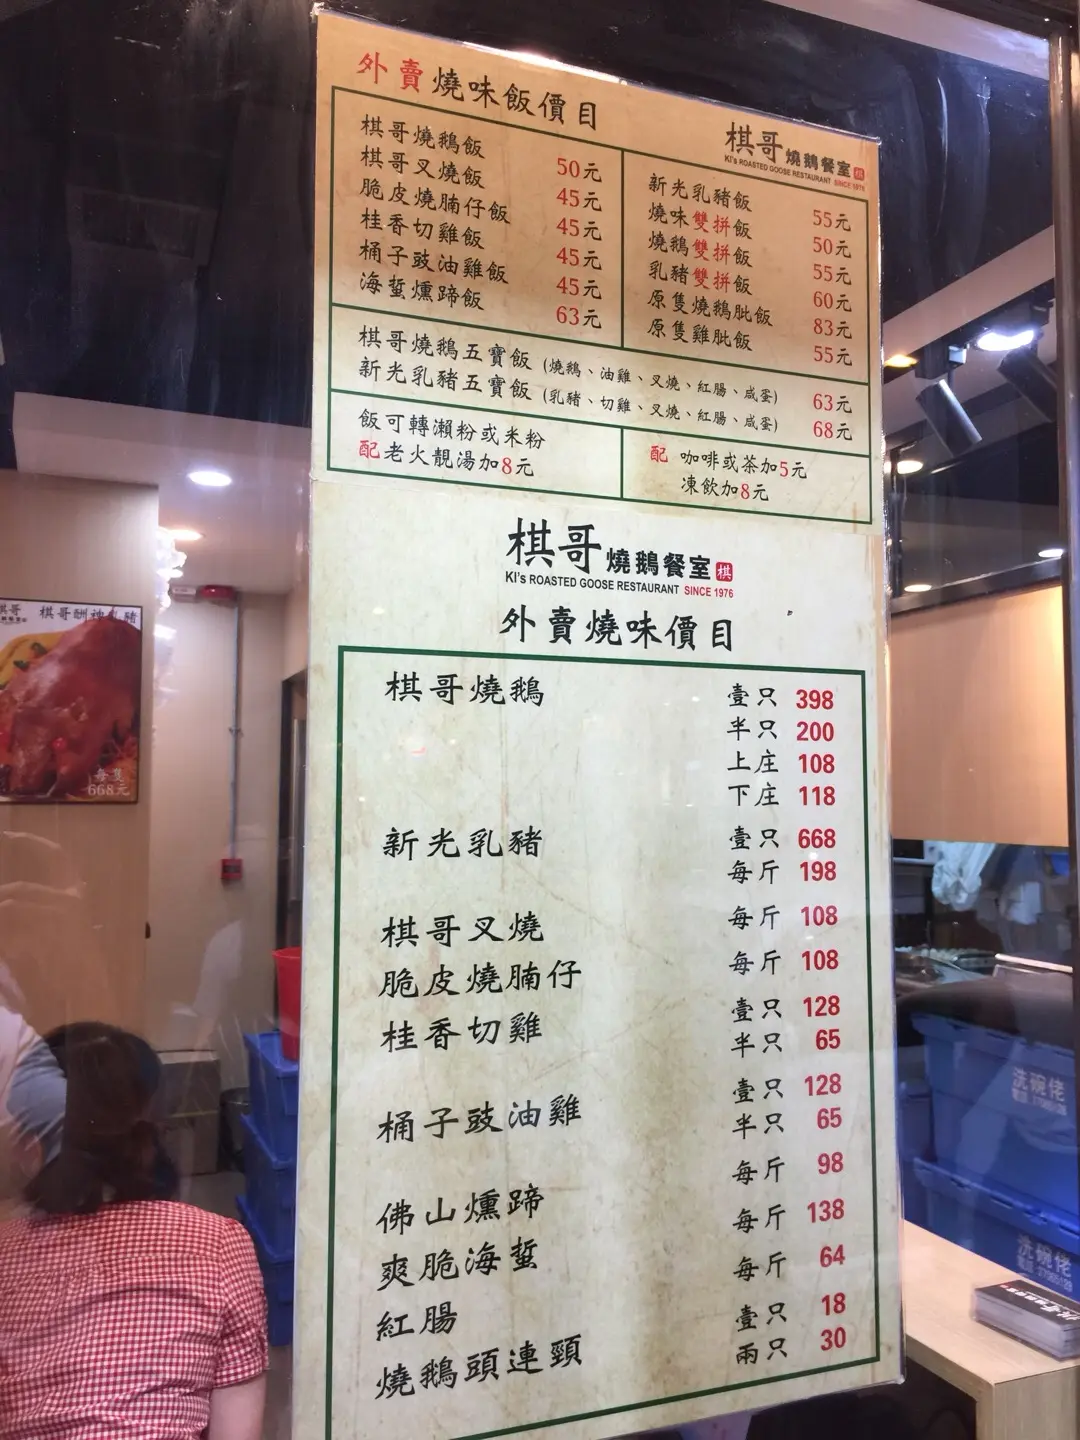 外賣燒味飯價目
棋哥燒鵝餐室 棋
KI's ROASTED GOOSE RESTAURANT SINCE 1976
棋哥燒鵝飯 50元
棋哥叉燒飯 45元
脆皮燒腩仔飯 45元
桂香切雞飯 45元
桶子豉油雞飯 45元
海蜇燻蹄飯 63元
新光乳豬飯 55元
燒味雙拼飯 50元
燒鵝雙拼飯 55元
乳豬雙拼飯 60元
原隻燒鵝髀飯 83元
原隻雞髀飯 55元
棋哥燒鵝五寶飯 (燒鵝、油雞、叉燒、紅腸、咸蛋) 63元
新光乳豬五寶飯 (乳豬、切雞、叉燒、紅腸、咸蛋) 68元
飯可轉瀨粉或米粉
配老火靚湯加8元
配 咖啡或茶加5元
凍飲加8元
棋哥燒鵝餐室 棋
KI's ROASTED GOOSE RESTAURANT SINCE 1976
外賣燒味價目
棋哥燒鵝 壹只 398
半只 200
上庄 108
下庄 118
新光乳豬 壹只 668
每斤 198
棋哥叉燒 每斤 108
脆皮燒腩仔 每斤 108
桂香切雞 壹只 128
半只 65
桶子豉油雞 壹只 128
半只 65
佛山燻蹄 每斤 98
爽脆海蜇 每斤 138
紅腸 每斤 64
燒鵝頭連頸 壹只 18
兩只 30
棋哥
棋哥酬神乳豬
每隻
668元
洗碗佬
洗碗佬